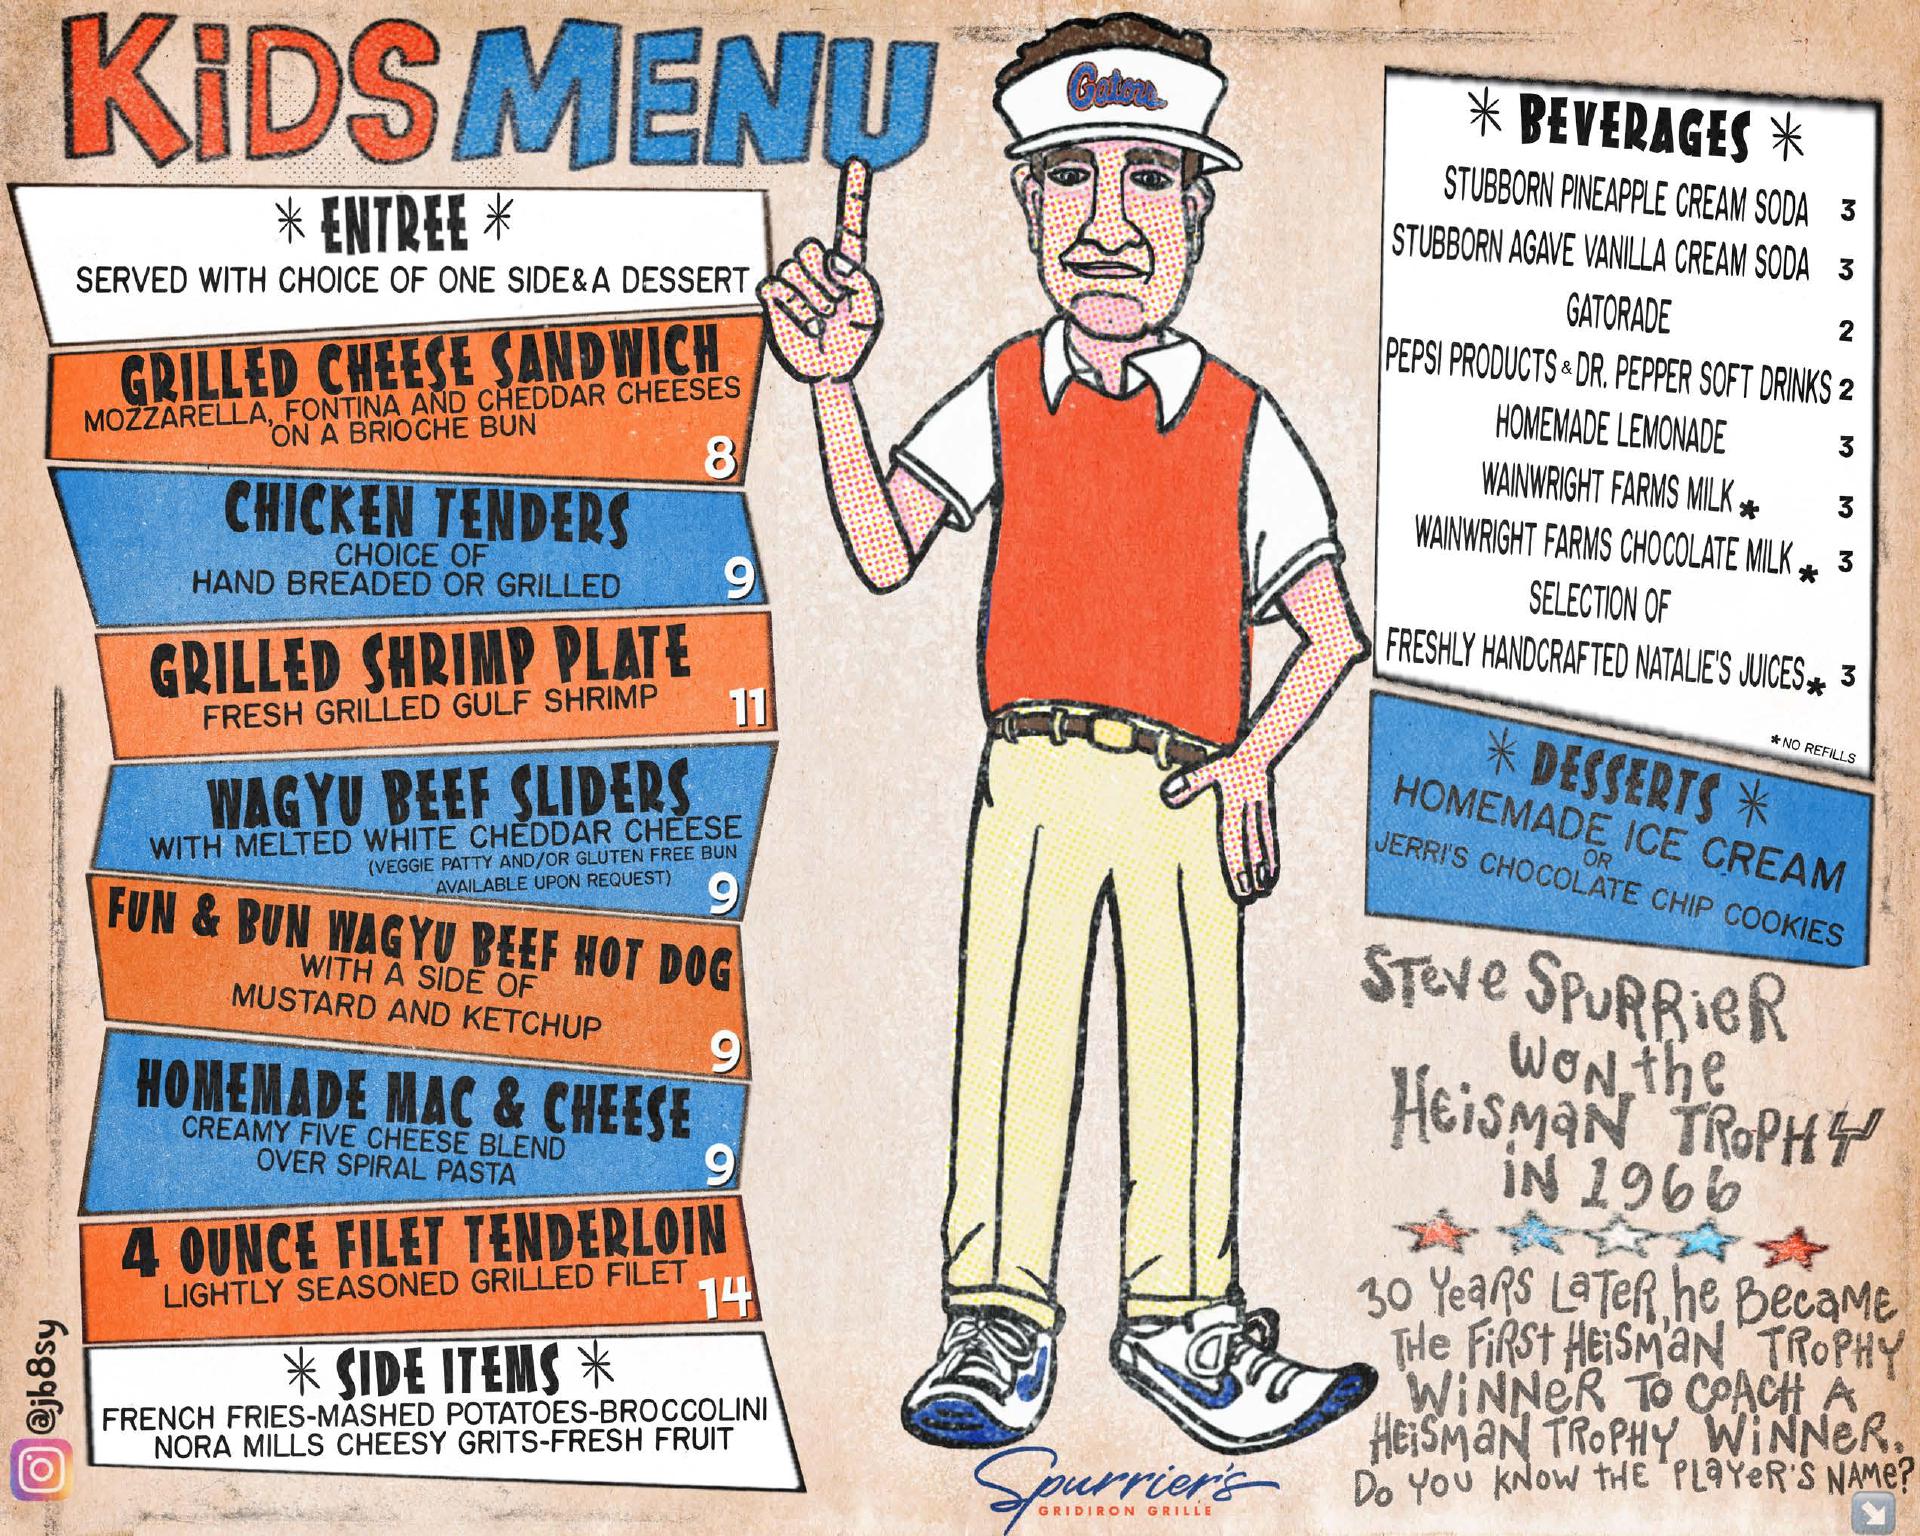 KiDS MENU
ENTREE
SERVED WITH CHOICE OF ONE SIDE&A DESSERT
GRILLED CHEESE SANDWICH
MOZZARELLA, FONTINA AND CHEDDAR CHEESES
ON A BRIOCHE BUN
8
CHICKEN TENDERS
CHOICE OF
HAND BREADED OR GRILLED
9
GRILLED SHRIMP PLATE
FRESH GRILLED GULF SHRIMP
11
WAGYU BEEF SLIDERS
WITH MELTED WHITE CHEDDAR CHEESE
(VEGGIE PATTY AND/OR GLUTEN FREE BUN
AVAILABLE UPON REQUEST)
9
FUN & BUN WAGYU BEEF HOT DOG
WITH A SIDE OF
MUSTARD AND KETCHUP
9
HOMEMADE MAC & CHEESE
CREAMY FIVE CHEESE BLEND
OVER SPIRAL PASTA
9
4 OUNCE FILET TENDERLOIN
LIGHTLY SEASONED GRILLED FILET
14
SIDE ITEMS
FRENCH FRIES-MASHED POTATOES-BROCCOLINI
NORA MILLS CHEESY GRITS-FRESH FRUIT
@jb8sy
Gators
Spurrier's
GRIDIRON GRILLE
BEVERAGES
STUBBORN PINEAPPLE CREAM SODA 3
STUBBORN AGAVE VANILLA CREAM SODA 3
GATORADE 2
PEPSI PRODUCTS & DR. PEPPER SOFT DRINKS 2
HOMEMADE LEMONADE 3
WAINWRIGHT FARMS MILK* 3
WAINWRIGHT FARMS CHOCOLATE MILK* 3
SELECTION OF
FRESHLY HANDCRAFTED NATALIE'S JUICES* 3
*NO REFILLS
DESSERTS
HOMEMADE ICE CREAM
OR
JERRI'S CHOCOLATE CHIP COOKIES
STeVe SPURRiER
WON the
HEiSMaN TRoPHY
iN 1966
30 YeaRS LaTeR, he BecaME
THe FiRSt HEiSMaN TRoPHY
WiNNeR To CoaCH A
HEiSMaN TRoPHY WiNNeR.
Do YoU KNoW THE PLaYeR'S NaMe?